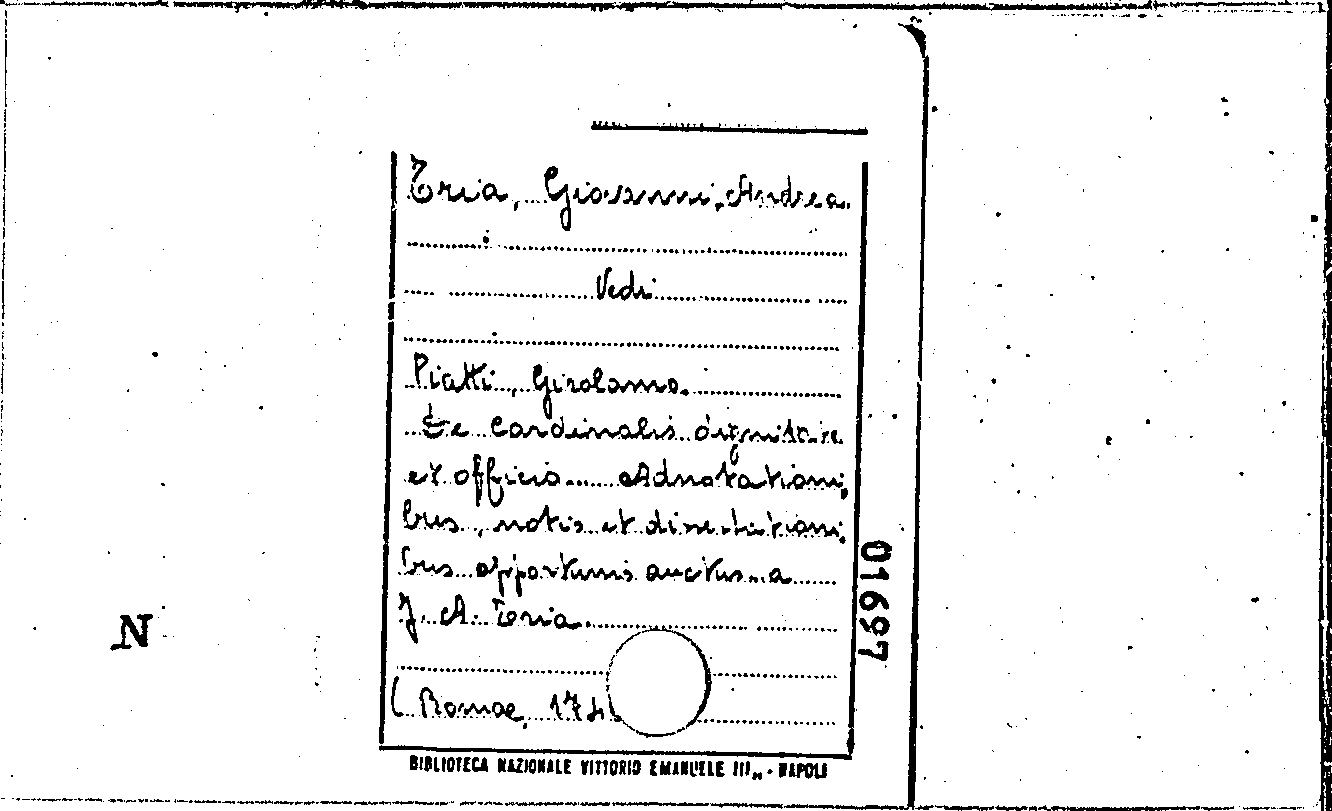 Tria, Giovanni Andrea.
Vedi
Piatti, Girolamo.
De Cardinalis dignitate
et officio... Adnotationi,
bus, notis et dissertationi,
bus opportunis auctus a
J. A. Tria.
(Romae, 174
01697
N
BIBLIOTECA NAZIONALE VITTORIO EMANUELE III,, - NAPOLI